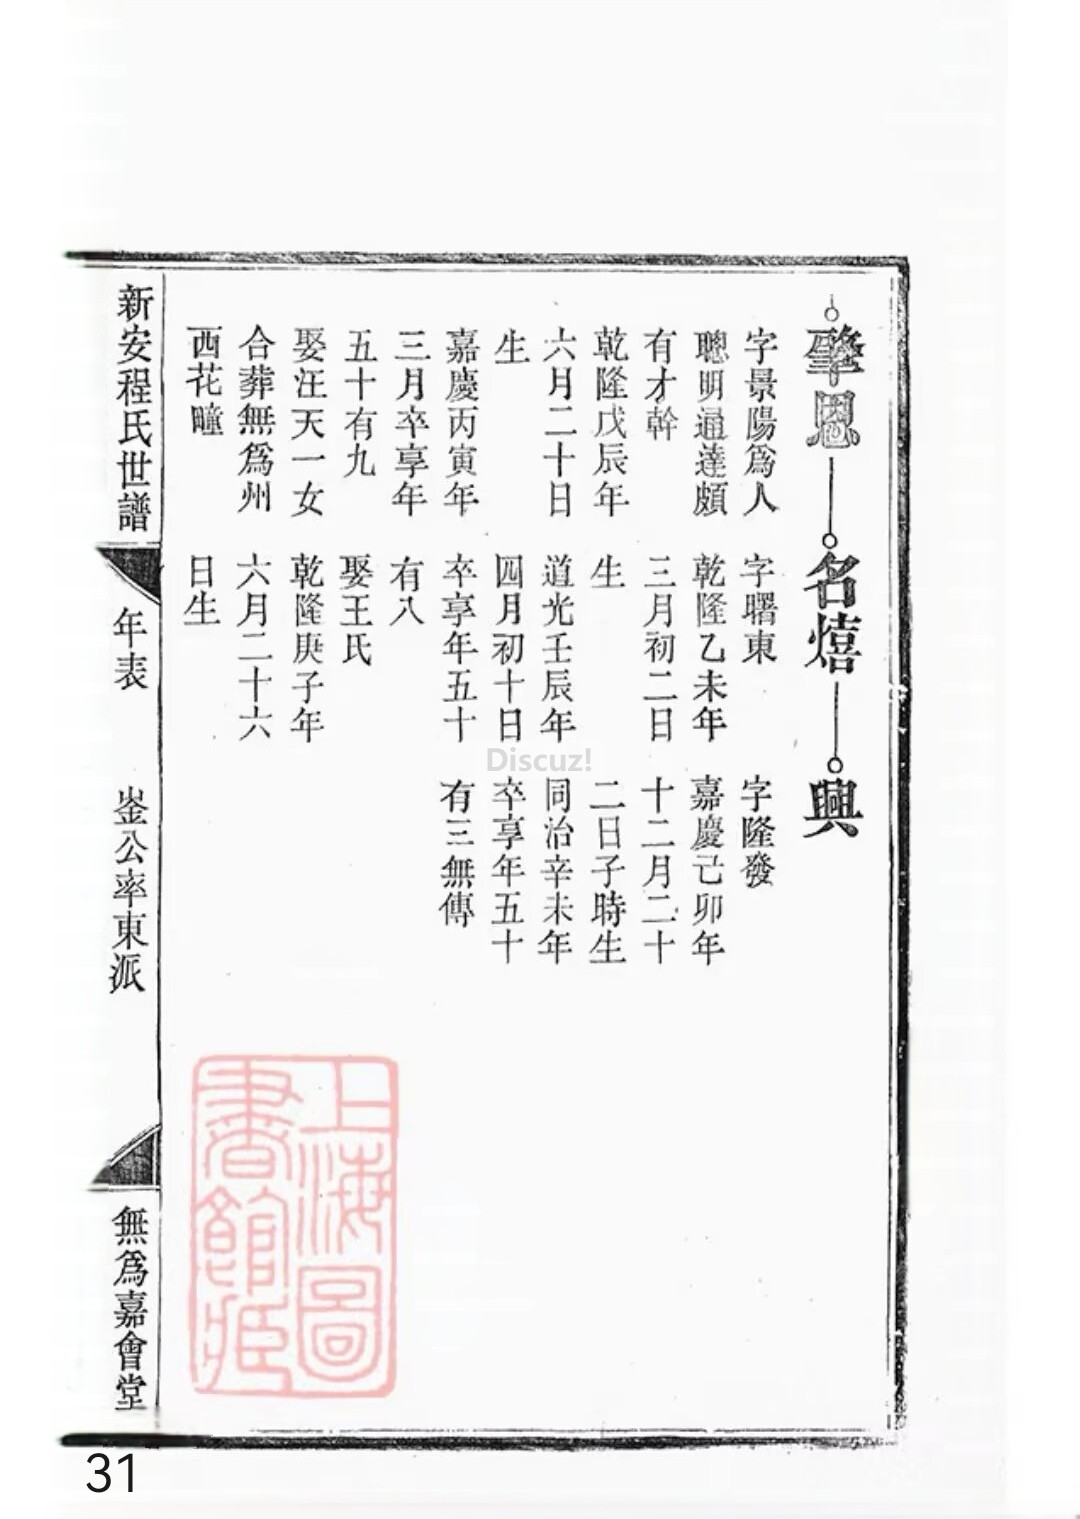 肇恩
名熺
興
字景陽爲人
聰明通達頗
有才幹
乾隆戊辰年
六月二十日
生
嘉慶丙寅年
三月卒享年
五十有九
娶汪天一女
合葬無爲州
西花疃
字曙東
乾隆乙未年
三月初二日
生
道光壬辰年
四月初十日
卒享年五十
有八
娶王氏
乾隆庚子年
六月二十六
日生
字隆發
嘉慶己卯年
十二月二十
二日子時生
同治辛未年
卒享年五十
有三無傳
新安程氏世譜
年表
崟公率東派
無爲嘉會堂
上海圖
書館藏
Discuz!
31